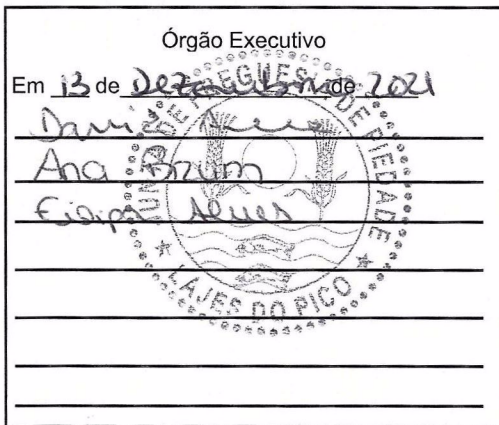 Órgão Executivo
Em 13 de Dezembro de 2021
Ana Brum
Filipe Alves
JUNTA DE FREGUESIA DE PIEDADE
LAJES DO PICO